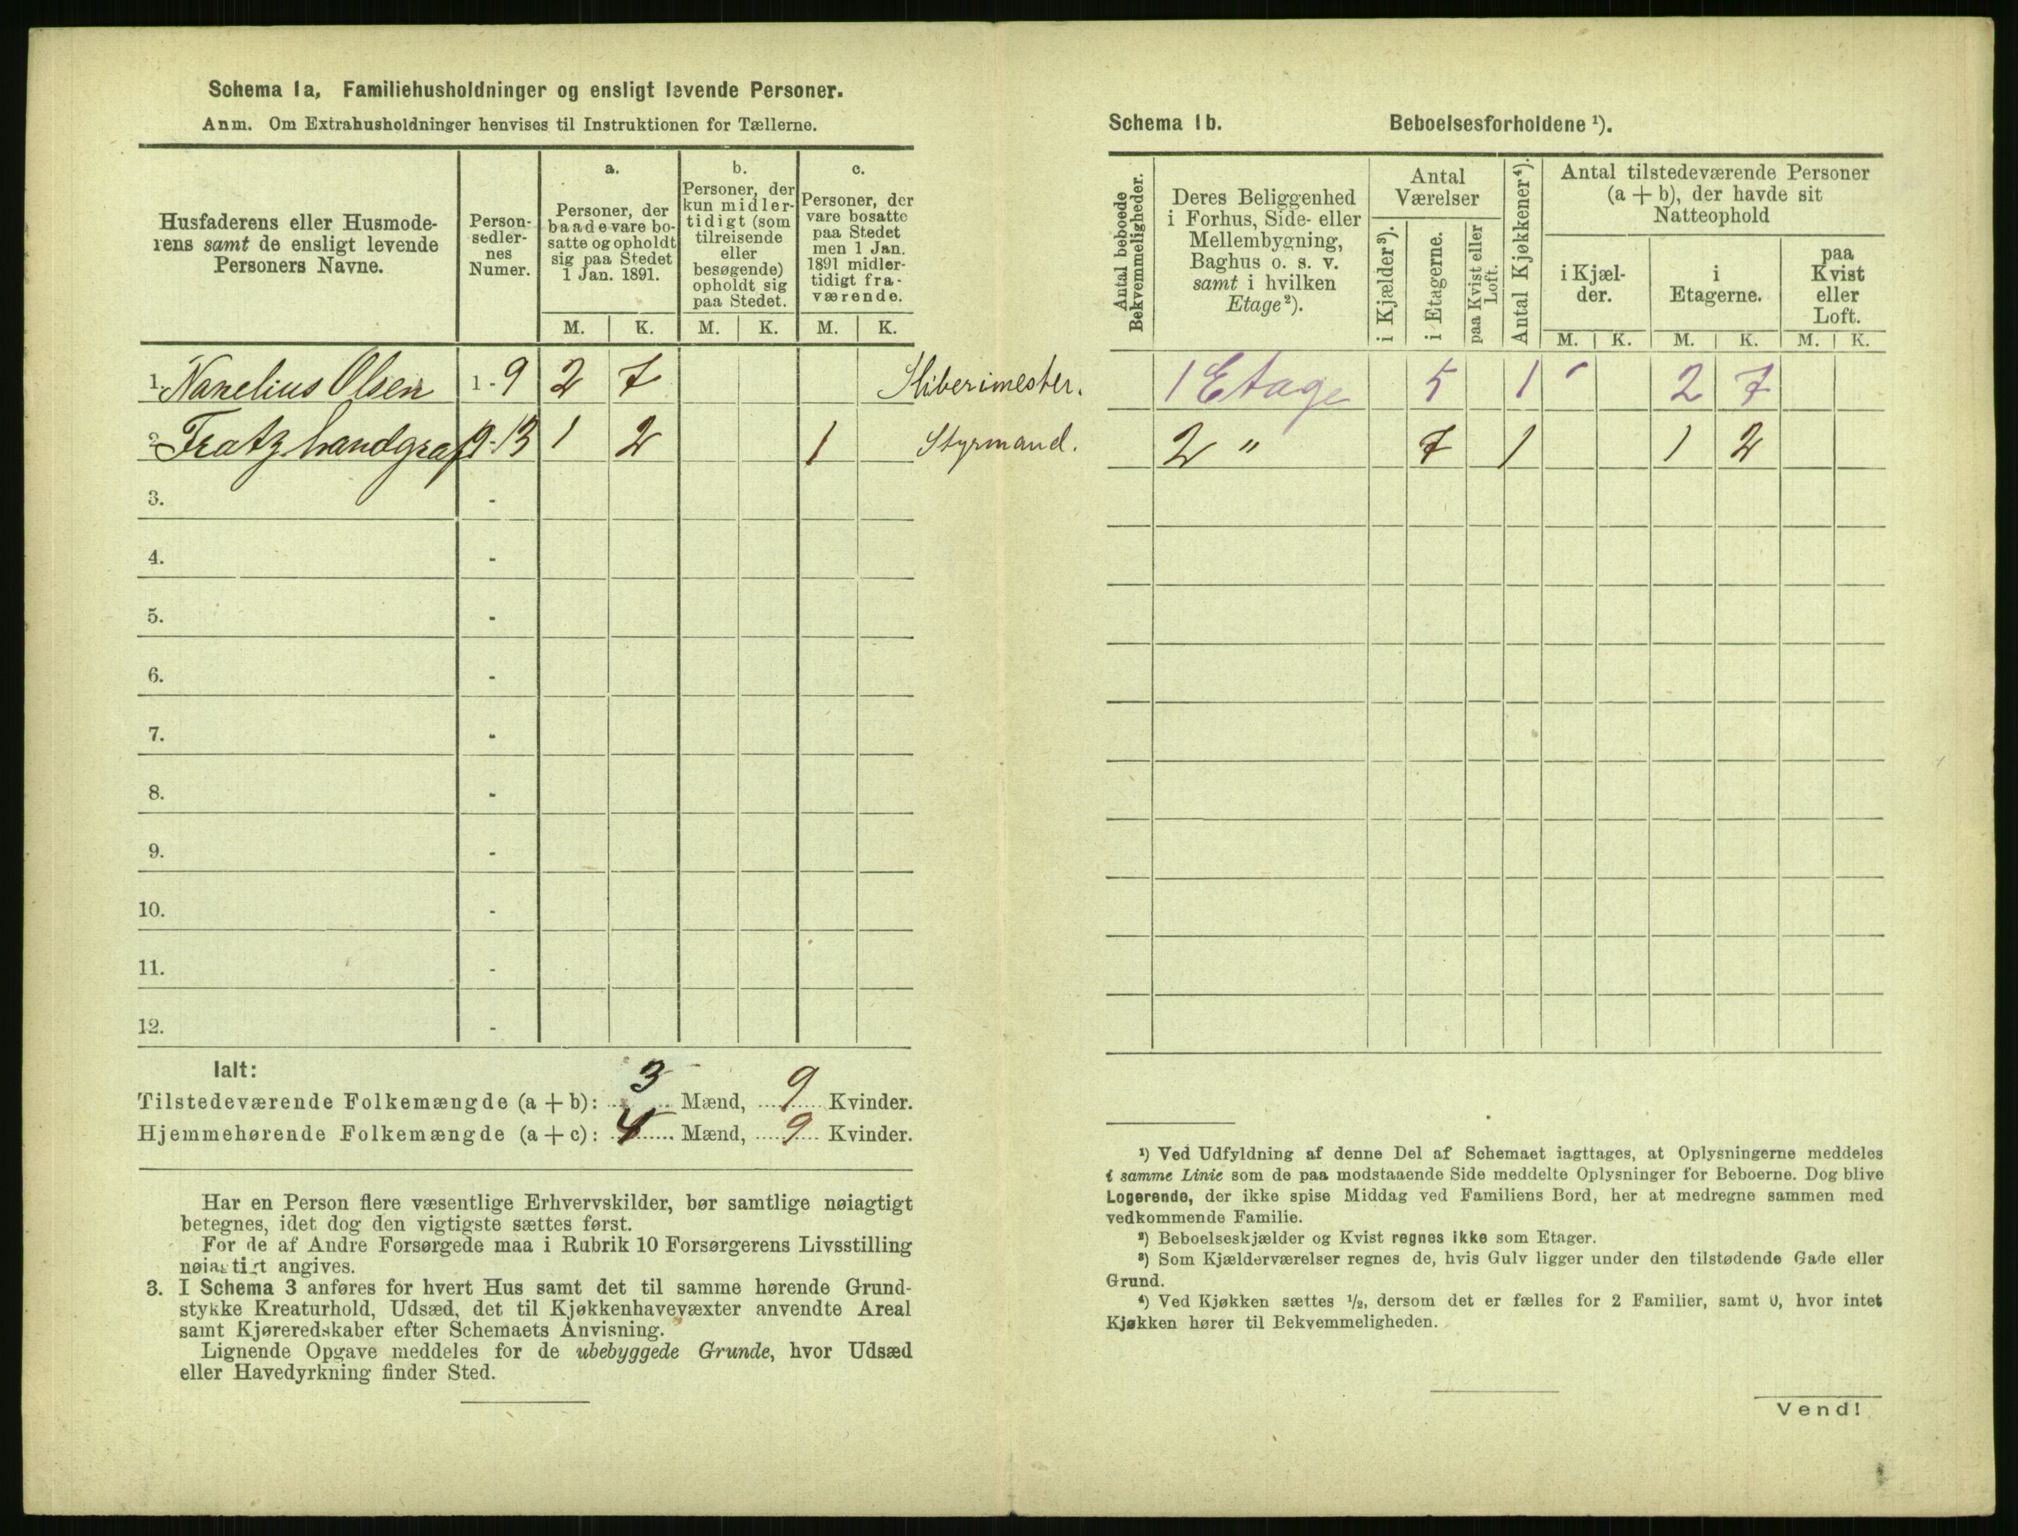 Schema 1a, Familiehusholdninger og ensligt levende Personer.
Anm. Om Extrahusholdninger henvises til Instruktionen for Tællerne.
Husfaderens eller Husmoderens samt de ensligt levende Personers Navne.
Personsedlernes Numer.
a.
Personer, der baade vare bosatte og opholdt sig paa Stedet 1 Jan. 1891.
b.
Personer, der kun midlertidigt (som tilreisende eller besøgende) opholdt sig paa Stedet.
c.
Personer, der vare bosatte paa Stedet men 1 Jan. 1891 midlertidigt fraværende.
M. K. M. K. M. K.
1. Nanelius Olsen 1-9 2 7 Sliberimester.
2. Fratz Landgraf 9-13 1 2 1 Styrmand.
3. -
4. -
5. -
6. -
7. -
8. -
9. -
10. -
11. -
12. -
Ialt:
Tilstedeværende Folkemængde (a + b): 3 Mænd, 9 Kvinder.
Hjemmehørende Folkemængde (a + c): 4 Mænd, 9 Kvinder.
Har en Person flere væsentlige Erhvervskilder, bør samtlige nøiagtigt
betegnes, idet dog den vigtigste sættes først.
For de af Andre Forsørgede maa i Rubrik 10 Forsørgerens Livsstilling
nøiagtigt angives.
3. I Schema 3 anføres for hvert Hus samt det til samme hørende Grund-
stykke Kreaturhold, Udsæd, det til Kjøkkenhavevæxter anvendte Areal
samt Kjøreredskaber efter Schemaets Anvisning.
Lignende Opgave meddeles for de ubebyggede Grunde, hvor Udsæd
eller Havedyrkning finder Sted.
Schema 1b. Beboelsesforholdene ¹).
Antal beboede Bekvemmeligheder.
Deres Beliggenhed i Forhus, Side- eller Mellembygning, Baghus o. s. v. samt i hvilken Etage²).
Antal Værelser
i Kjælder³).
i Etagerne.
paa Kvist eller Loft.
Antal Kjøkkener⁴).
Antal tilstedeværende Personer (a + b), der havde sit Natteophold
i Kjælder.
i Etagerne.
paa Kvist eller Loft.
M. K. M. K. M. K.
1 Etage 5 1 2 7
2 " 7 1 1 2
¹) Ved Udfyldning af denne Del af Schemaet iagttages, at Oplysningerne meddeles
i samme Linie som de paa modstaaende Side meddelte Oplysninger for Beboerne. Dog blive
Logerende, der ikke spise Middag ved Familiens Bord, her at medregne sammen med
vedkommende Familie.
²) Beboelseskjælder og Kvist regnes ikke som Etager.
³) Som Kjælderværelser regnes de, hvis Gulv ligger under den tilstødende Gade eller
Grund.
⁴) Ved Kjøkken sættes ½, dersom det er fælles for 2 Familier, samt 0, hvor intet
Kjøkken hører til Bekvemmeligheden.
Vend!